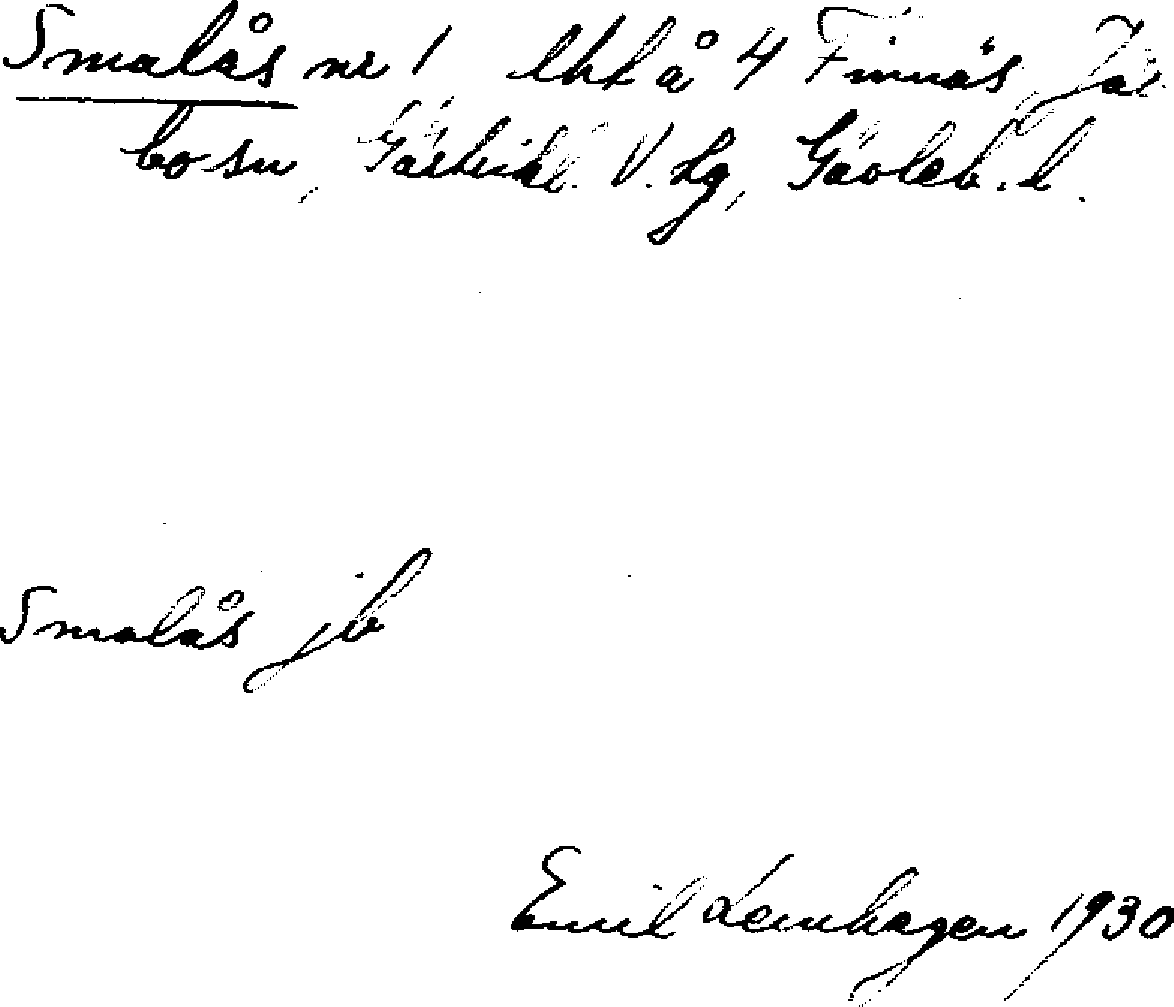 Smalås nr 1 lht å 4 Finnäs, Jär-
bo sn, Gästrikl. V. tg, Gävleb. l.
Smalås jb
Emil Lernhagen 1930